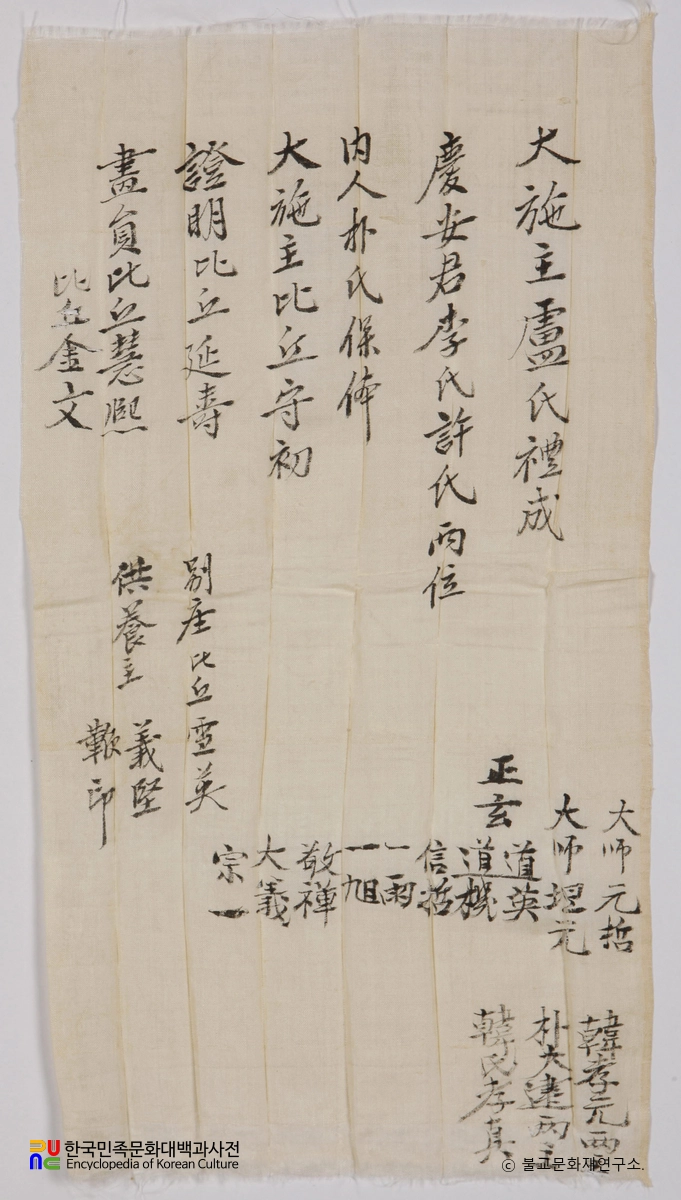 大施主盧氏禮成
慶安君李氏許氏兩位
内人朴氏保体
大施主比丘守初
證明比丘延壽
畫員比丘慧熙
比丘金文
別座比丘雪英
供養主
義堅
印
大師元哲
大師坦元
正玄
道英
道機
信哲
一雨
一旭
敬禅
大義
宗一
韓孝元兩主
朴大建兩主
韓氏孝真
한국민족문화대백과사전
Encyclopedia of Korean Culture
© 불교문화재연구소.